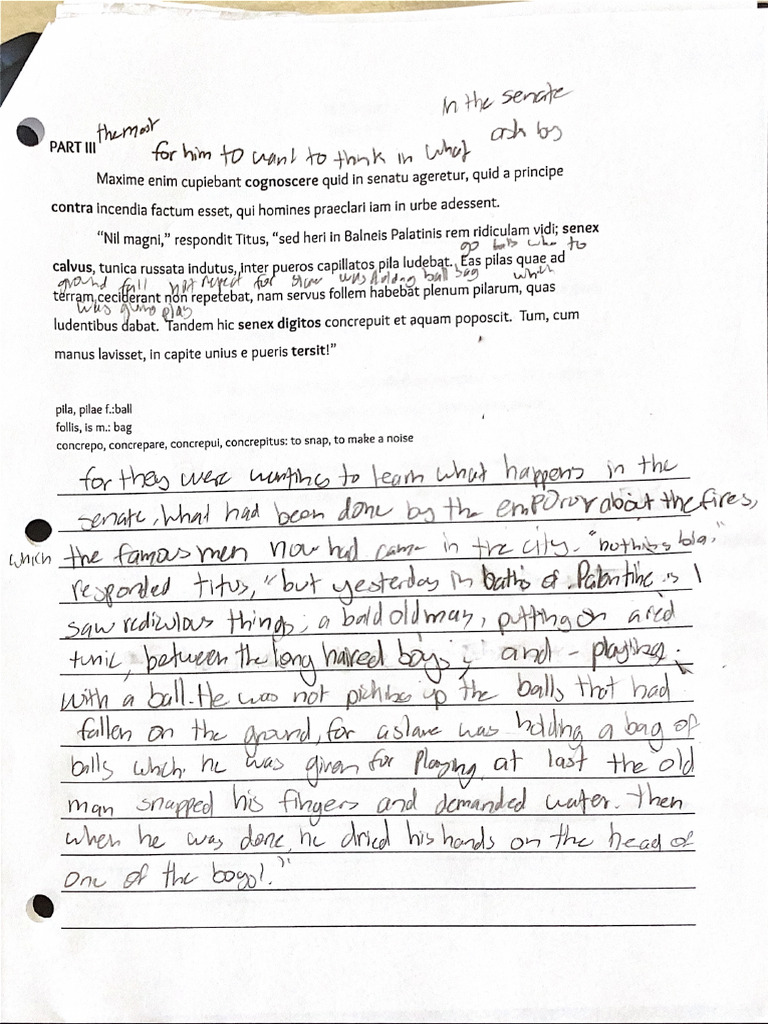 In the senate
the most
ask by
PART III
for him to want to think in what
Maxime enim cupiebant cognoscere quid in senatu ageretur, quid a principe
contra incendia factum esset, qui homines praeclari iam in urbe adessent.
"Nil magni," respondit Titus, "sed heri in Balneis Palatinis rem ridiculam vidi; senex
go balls who to
calvus, tunica russata indutus, inter pueros capillatos pila ludebat. Eas pilas quae ad
ground fall not repeat for slave was holding ball bag which
terram ceciderant non repetebat, nam servus follem habebat plenum pilarum, quas
was giving play
ludentibus dabat. Tandem hic senex digitos concrepuit et aquam poposcit. Tum, cum
manus lavisset, in capite unius e pueris tersit!"
pila, pilae f.:ball
follis, is m.: bag
concrepo, concrepare, concrepui, concrepitus: to snap, to make a noise
for they were wanting to learn what happens in the
senate, what had been done by the emporor about the fires,
which the famous men now had came in the city. "nothing big,"
responded titus, "but yesterday in baths of Palentine is I
saw rediculous things; a bald old man, putting on a red
tunic, between the long haired boys, and - playing
with a ball. He was not picking up the balls that had
fallen on the ground, for a slave was holding a bag of
balls which he was given for playing. at last the old
man snapped his fingers and demanded water. Then
when he was done, he dried his hands on the head of
one of the boys!."